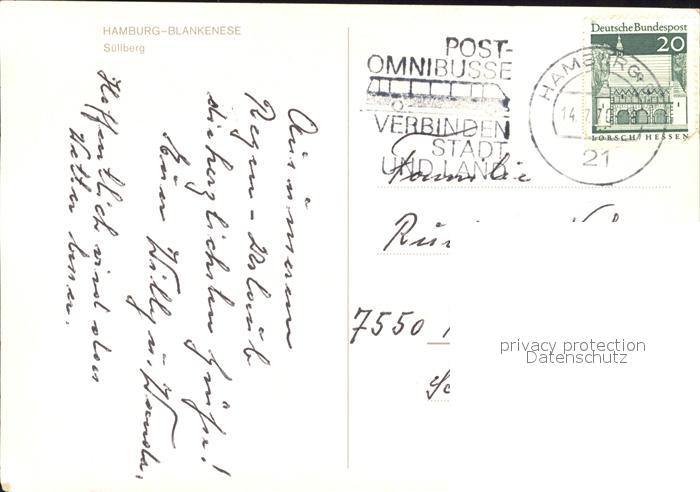 HAMBURG-BLANKENESE
Süllberg
Aus unserem
Regen-Urlaub
die herzlichsten Grüße!
Eure Willy u. Wanda.
Hoffentlich wird das
Wetter besser.
POST-
OMNIBUSSE
VERBINDEN
STADT
UND LAND
HAMBURG
14.7.7
21
Deutsche Bundespost
20
LORSCH/HESSEN
Familie
7550
privacy protection
Datenschutz